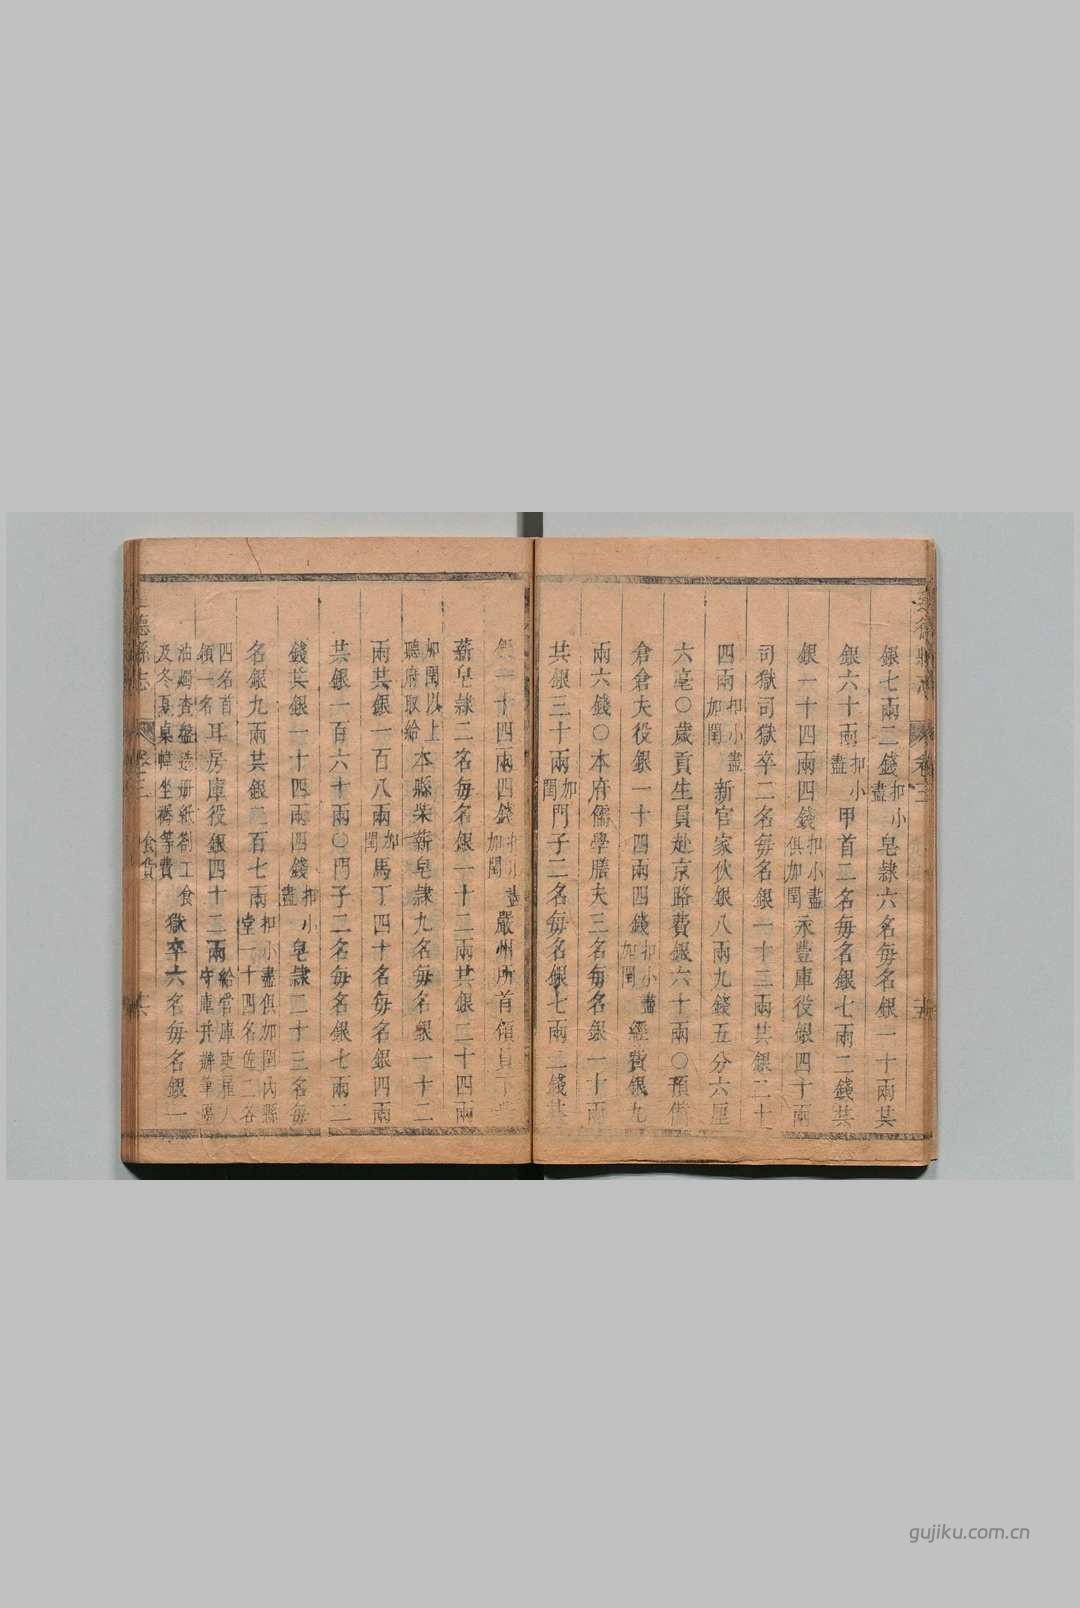 銀七兩二錢扣小盡皂隸六名每名銀一十兩共
銀六十兩扣小盡甲首二名每名銀七兩二錢共
銀一十四兩四錢扣小盡俱加閏永豐庫役銀四十兩
司獄司獄卒二名每名銀一十二兩共銀二十
四兩扣小盡加閏新官家伙銀八兩九錢五分六厘
六毫〇歲貢生員赴京路費銀六十兩〇預備
倉倉夫役銀一十四兩四錢扣小盡加閏經費銀九
兩六錢〇本府儒學膳夫三名每名銀一十兩
共銀三十兩加閏門子二名每名銀七兩二錢共
銀一十四兩四錢扣小盡加閏嚴州所首領員下
薪皂隸二名每名銀一十二兩共銀二十四兩
加閏以上聽府取給本縣柴薪皂隸九名每名銀一十二
兩共銀一百八兩加閏馬丁四十名每名銀四兩
共銀一百六十兩〇門子二名每名銀七兩二
錢共銀一十四兩四錢扣小盡皂隸二十三名每
名銀九兩共銀二百七兩扣小盡俱加閏內縣堂一十四名佐二各
四名首領一名耳房庫役銀四十二兩給當庫吏雇人守庫并辦筆
油燭查盤造册紙劄工食及冬夏桌幃坐褥等費獄卒六名每名銀一
德縣志
卷三
食貨
德縣志
卷三
gujiku.com.cn